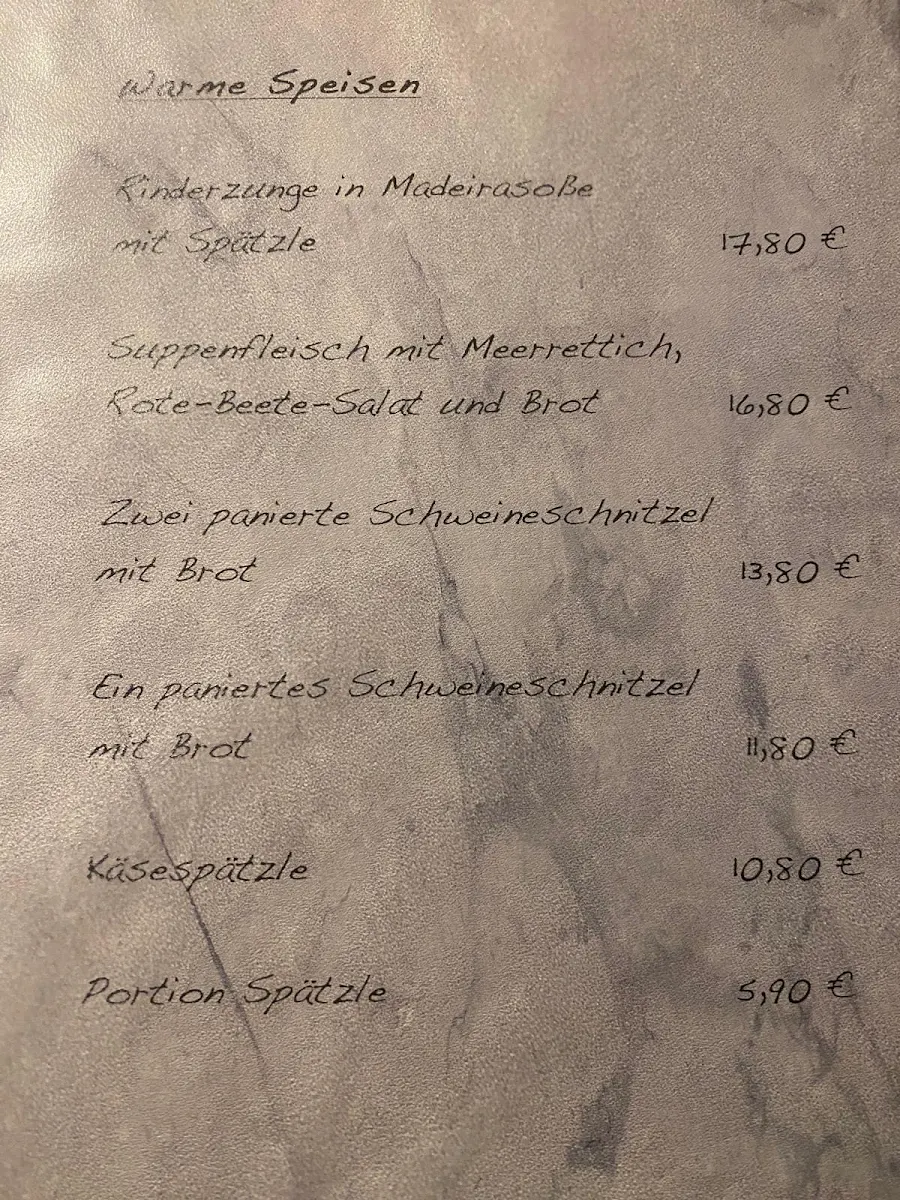 Warme Speisen
Rinderzunge in Madeirasoße
mit Spätzle 17,80 €
Suppenfleisch mit Meerrettich,
Rote-Beete-Salat und Brot 16,80 €
Zwei panierte Schweineschnitzel
mit Brot 13,80 €
Ein paniertes Schweineschnitzel
mit Brot 11,80 €
Käsespätzle 10,80 €
Portion Spätzle 5,90 €